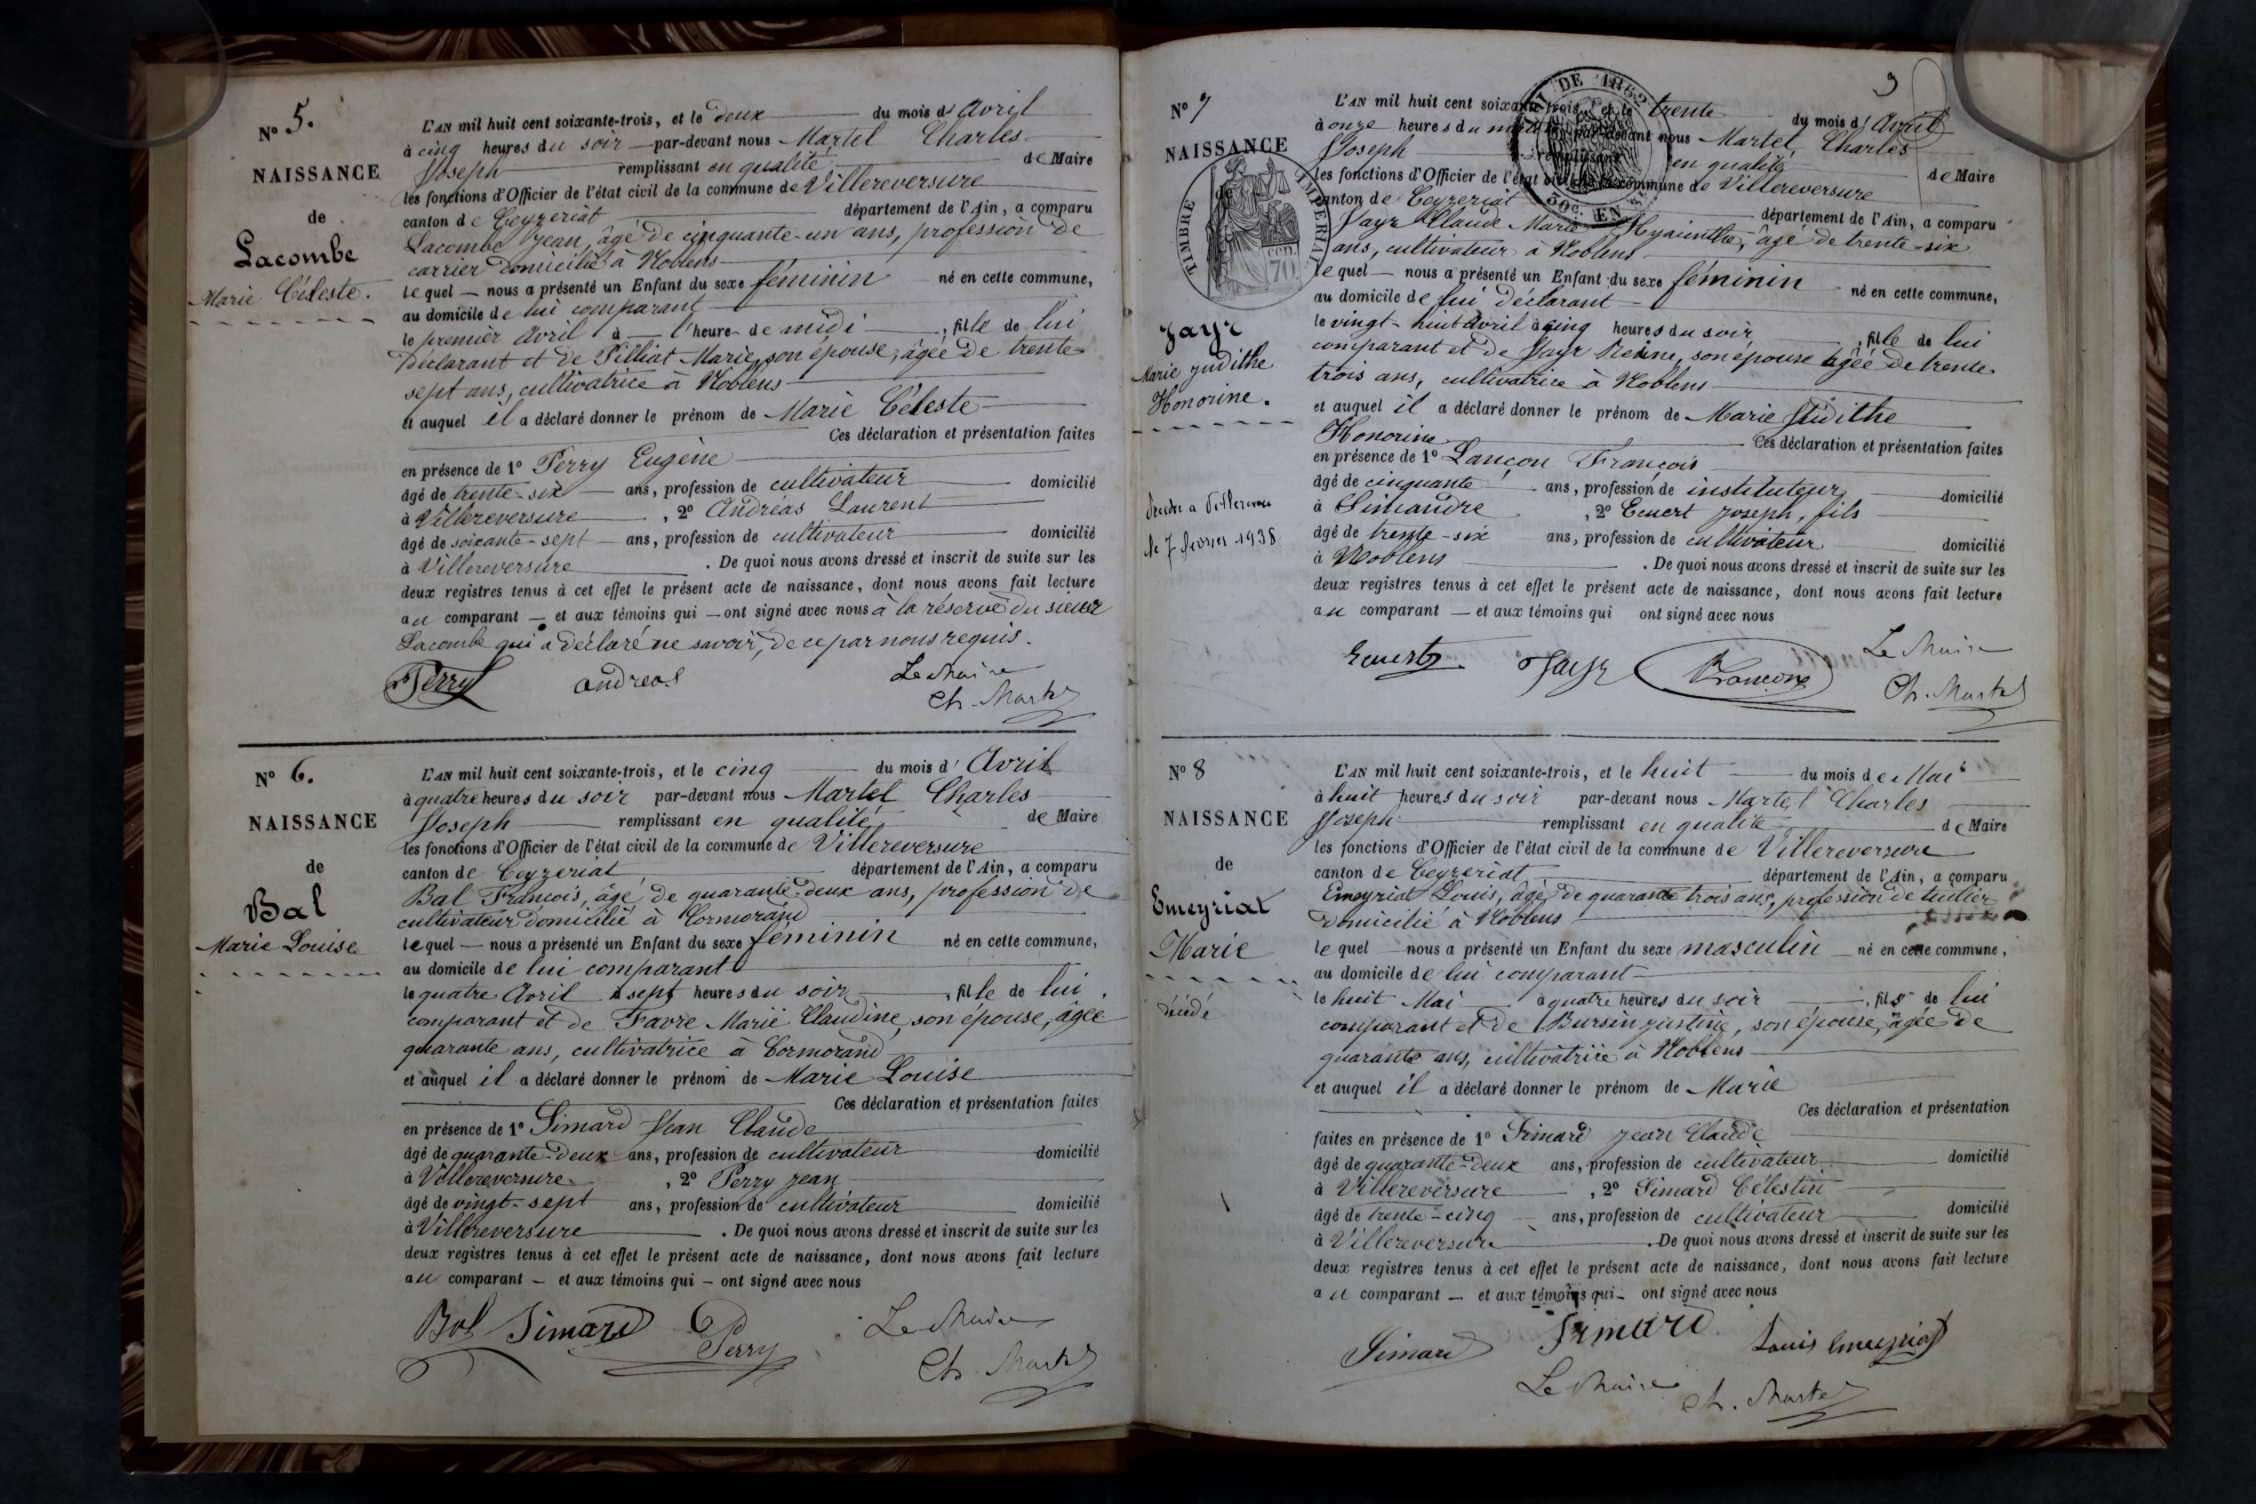 N° 5.
NAISSANCE
de
Lacombe
Marie Céleste.
L'AN mil huit cent soixante-trois, et le deux du mois d'Avril
à cinq heures du soir par-devant nous Martel Charles
Joseph remplissant en qualité de Maire
les fonctions d'Officier de l'état civil de la commune de Villereversure
canton de Ceyzeriat département de l'Ain, a comparu
Lacombe Jean, âgé de cinquante-un ans, profession de
carrier domicilié à Noblens
lequel nous a présenté un Enfant du sexe féminin né en cette commune,
au domicile de lui comparant
le premier Avril à l'heure de midi, fille de lui
Déclarant et de Pilliat Marie, son épouse, âgée de trente
sept ans, cultivatrice à Noblens
et auquel il a déclaré donner le prénom de Marie Céleste
Ces déclaration et présentation faites
en présence de 1° Perry Eugène
âgé de trente-six ans, profession de cultivateur domicilié
à Villereversure, 2° Andréas Laurent
âgé de soixante-sept ans, profession de cultivateur domicilié
à Villereversure. De quoi nous avons dressé et inscrit de suite sur les
deux registres tenus à cet effet le présent acte de naissance, dont nous avons fait lecture
au comparant et aux témoins qui ont signé avec nous à la réserve du sieur
Lacombe qui a déclaré ne savoir, de ce par nous requis.
Perry andreas Le Maire
Ch. Martel
N° 6.
NAISSANCE
de
Bal
Marie Louise
L'AN mil huit cent soixante-trois, et le cinq du mois d'Avril
à quatre heures du soir par-devant nous Martel Charles
Joseph remplissant en qualité de Maire
les fonctions d'Officier de l'état civil de la commune de Villereversure
canton de Ceyzeriat département de l'Ain, a comparu
Bal François, âgé de quarante-deux ans, profession de
cultivateur domicilié à Cormorand
lequel nous a présenté un Enfant du sexe féminin né en cette commune,
au domicile de lui comparant
le quatre Avril à sept heures du soir, fille de lui
comparant et de Favre Marie Claudine, son épouse, âgée
quarante ans, cultivatrice à Cormorand
et auquel il a déclaré donner le prénom de Marie Louise
Ces déclaration et présentation faites
en présence de 1° Simard Jean Claude
âgé de quarante-deux ans, profession de cultivateur domicilié
à Villereversure, 2° Perry Jean
âgé de vingt-sept ans, profession de cultivateur domicilié
à Villereversure. De quoi nous avons dressé et inscrit de suite sur les
deux registres tenus à cet effet le présent acte de naissance, dont nous avons fait lecture
au comparant et aux témoins qui ont signé avec nous
Bal Simard Perry Le Maire
Ch. Martel
3
N° 7
NAISSANCE
de
TIMBRE IMPERIAL
70
DE 1862
50c. EN
Jayr
Marie Judithe
Honorine.
décédée à Villereversure
le 7 février 1938
L'AN mil huit cent soixante-trois, et le trente du mois d'Avril
à onze heures du matin par-devant nous Martel Charles
Joseph remplissant en qualité de Maire
les fonctions d'Officier de l'état civil de la commune de Villereversure
canton de Ceyzeriat département de l'Ain, a comparu
Jayr Claude Marie Hyacinthe, âgé de trente-six
ans, cultivateur à Noblens
lequel nous a présenté un Enfant du sexe féminin né en cette commune,
au domicile de lui déclarant
le vingt-huit Avril à cinq heures du soir, fille de lui
comparant et de Jayr Reine, son épouse âgée de trente
trois ans, cultivatrice à Noblens
et auquel il a déclaré donner le prénom de Marie Judithe
Honorine Ces déclaration et présentation faites
en présence de 1° Lançon François
âgé de cinquante ans, profession de instituteur domicilié
à Simandre, 2° Ecuert Joseph, fils
âgé de trente-six ans, profession de cultivateur domicilié
à Noblens. De quoi nous avons dressé et inscrit de suite sur les
deux registres tenus à cet effet le présent acte de naissance, dont nous avons fait lecture
au comparant et aux témoins qui ont signé avec nous
Ecuert Jayr Lançon Le Maire
Ch. Martel
N° 8
NAISSANCE
de
Emeyriat
Marie
décédé
L'AN mil huit cent soixante-trois, et le huit du mois de Mai
à huit heures du soir par-devant nous Martel Charles
Joseph remplissant en qualité de Maire
les fonctions d'Officier de l'état civil de la commune de Villereversure
canton de Ceyzeriat département de l'Ain, a comparu
Emeyriat Louis, âgé de quarante trois ans, profession de tuilier
domicilié à Noblens
lequel nous a présenté un Enfant du sexe masculin né en cette commune,
au domicile de lui comparant
le huit Mai à quatre heures du soir, fils de lui
comparant et de Bursin Justine, son épouse, âgée de
quarante ans, cultivatrice à Noblens
et auquel il a déclaré donner le prénom de Marie
Ces déclaration et présentation
faites en présence de 1° Simard Jean Claude
âgé de quarante-deux ans, profession de cultivateur domicilié
à Villereversure, 2° Simard Célestin
âgé de trente-cinq ans, profession de cultivateur domicilié
à Villereversure. De quoi nous avons dressé et inscrit de suite sur les
deux registres tenus à cet effet le présent acte de naissance, dont nous avons fait lecture
au comparant et aux témoins qui ont signé avec nous
Simard Simard Louis Emeyriat
Le Maire Ch. Martel